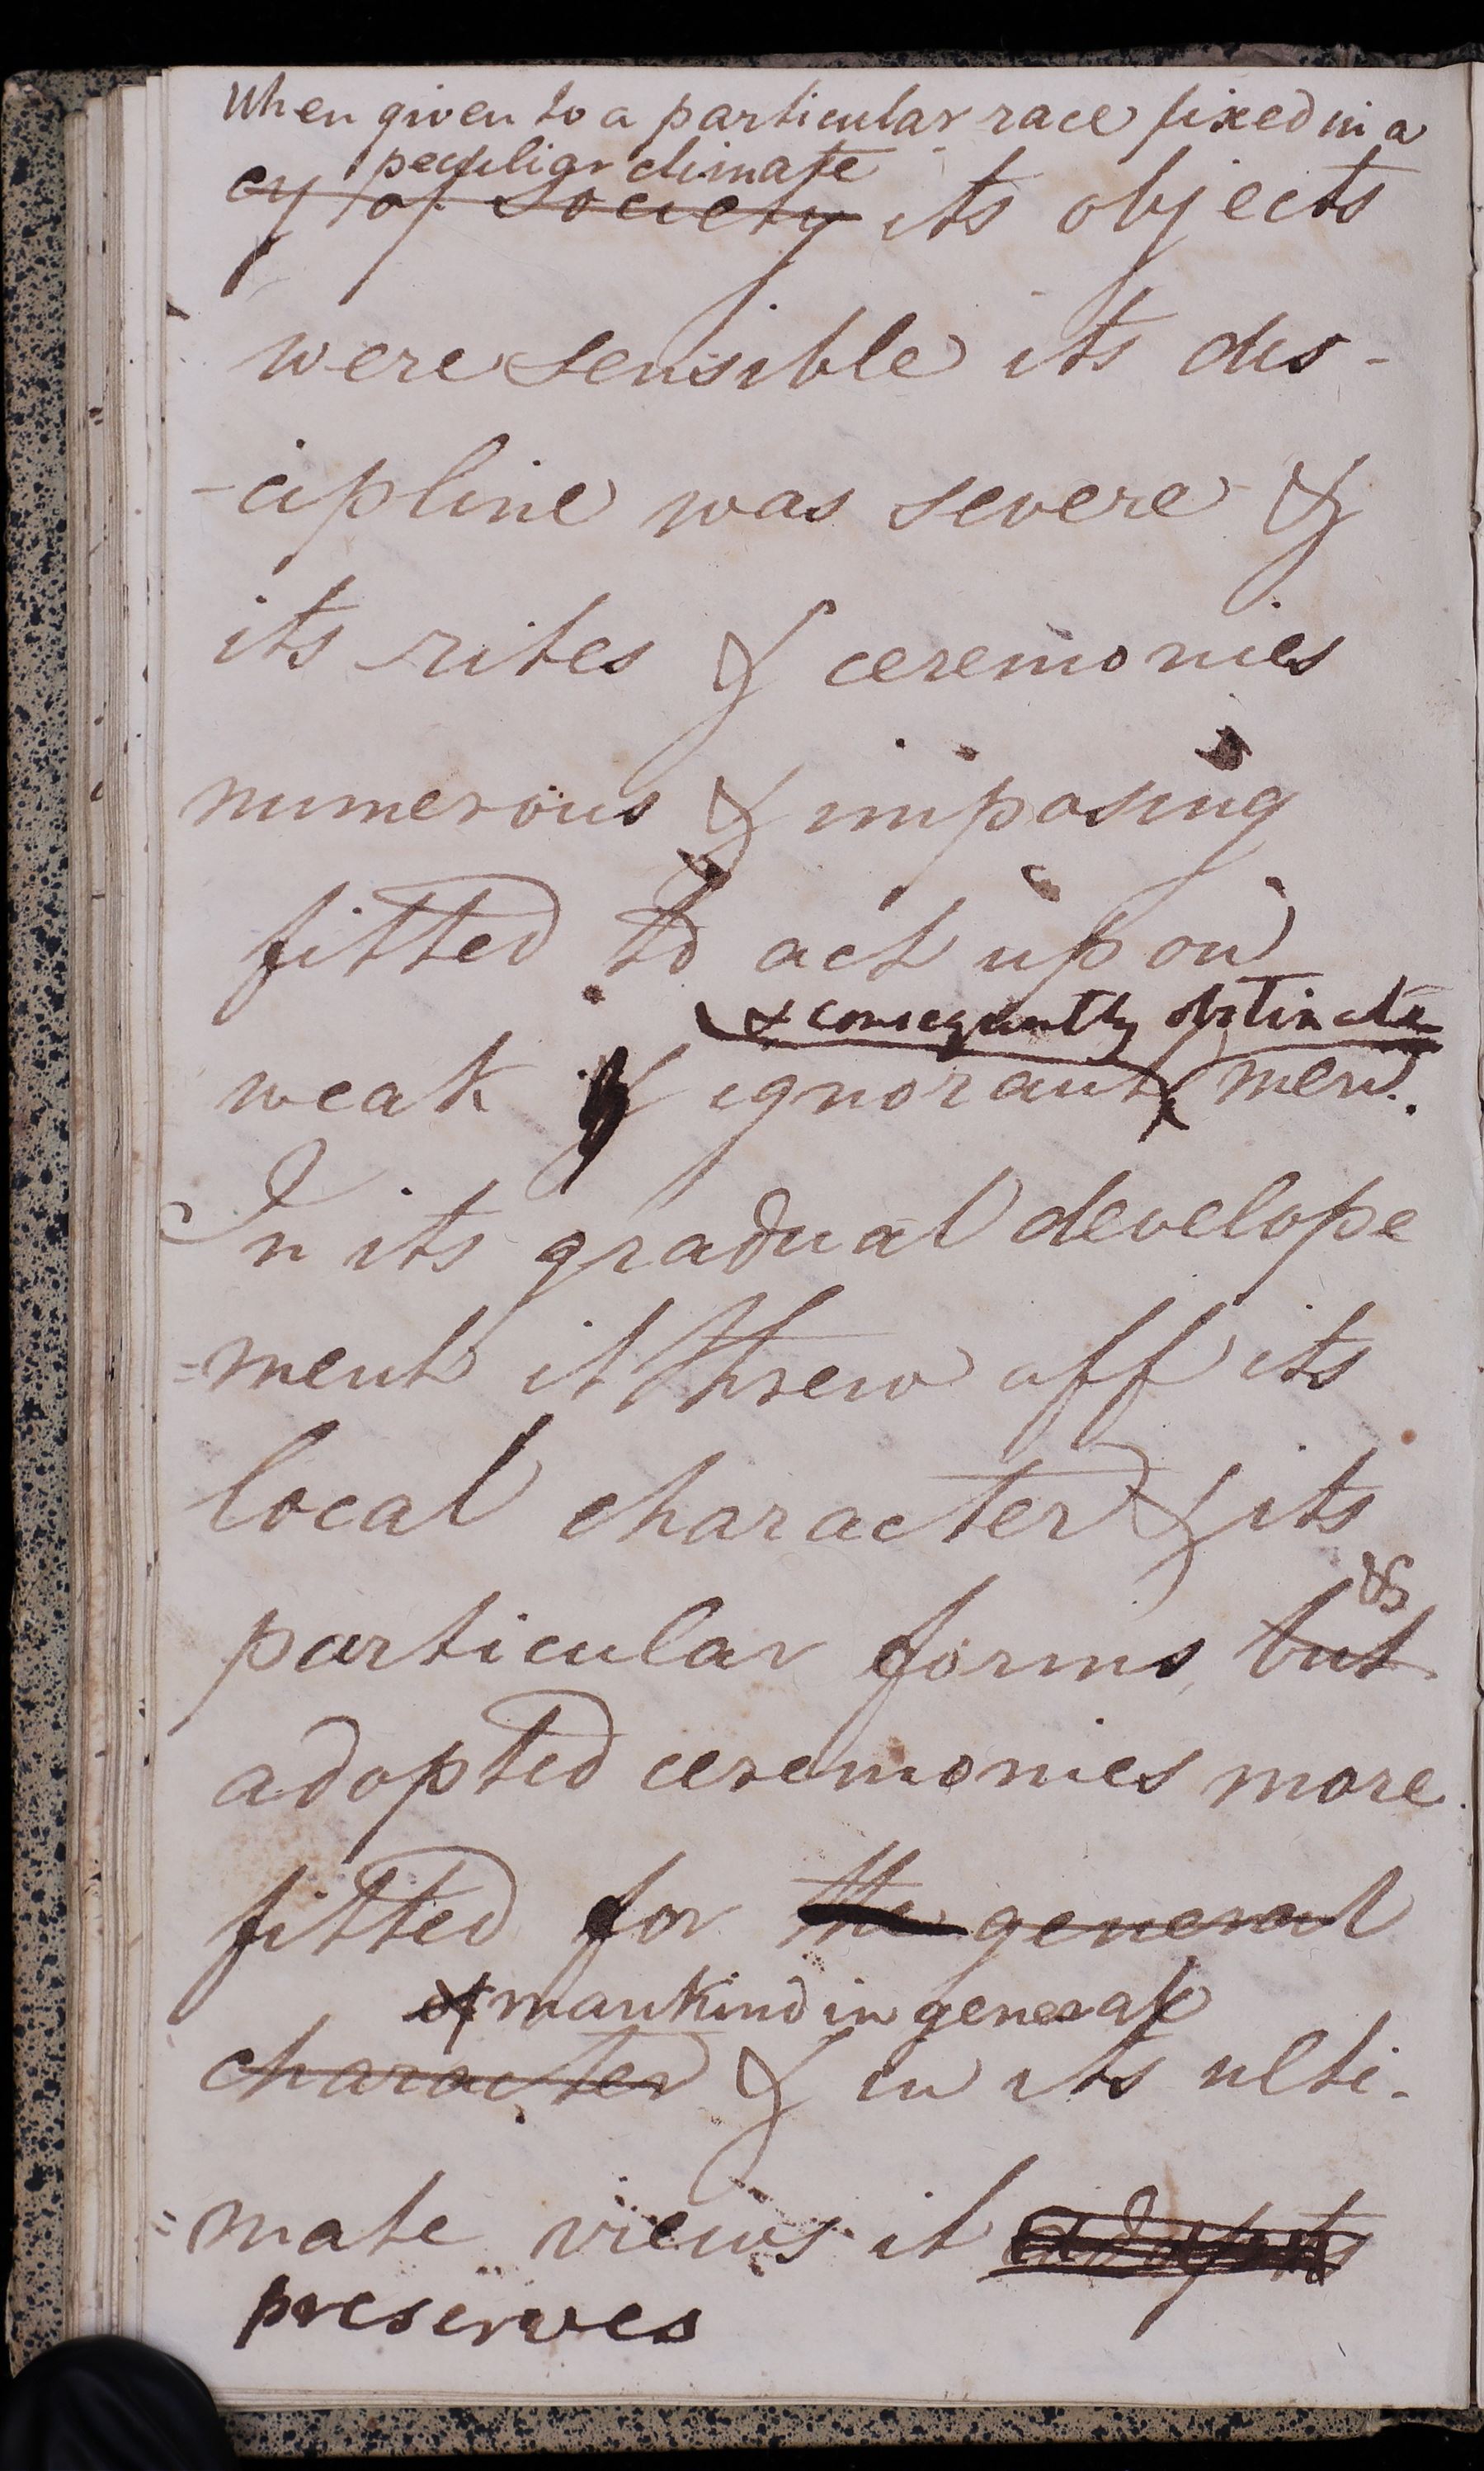 When given to a particular race fixed in a
peculiar climate
cy of society its objects
were sensible its dis-
-cipline was severe &
its rites & ceremonies
numerous & imposing
fitted to act upon
& consequently obstinate
weak & ignorant men.
In its gradual develope
=ment it threw off its
local character & its
&
particular forms, but
adopted ceremonies more
fitted for the general
of mankind in general
character & in its ulti-
=mate views it adopts
preserves